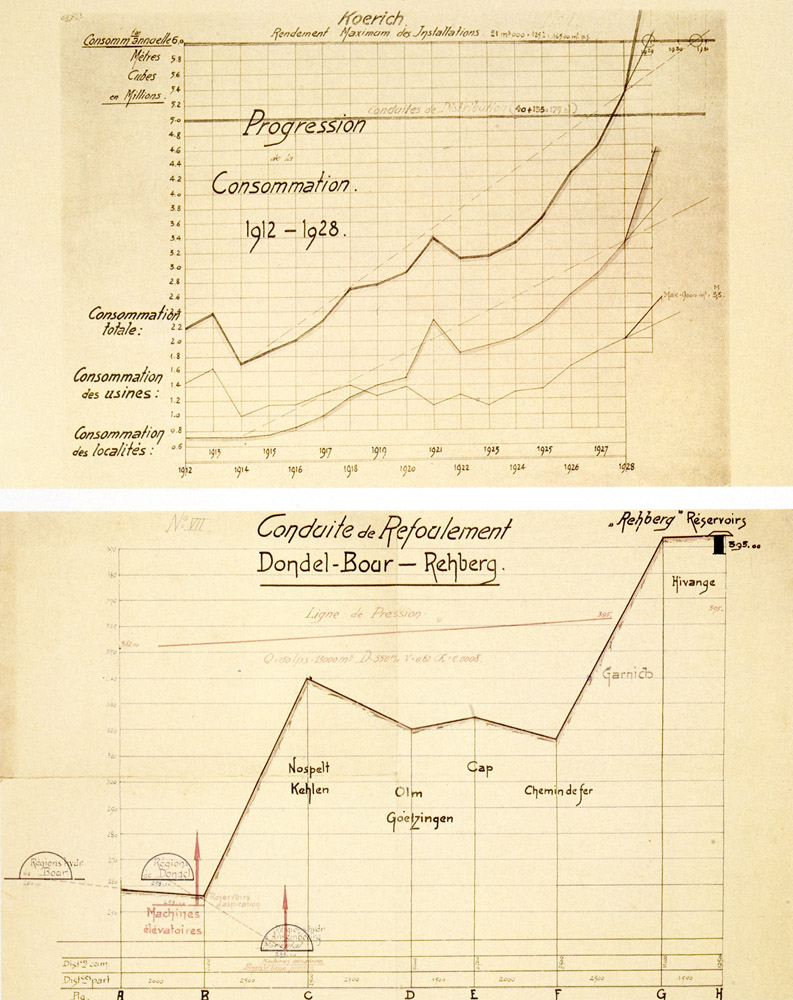 Koerich
Rendement Maximum des Installations
Consomm. annuelle 6,0
Mètres
Cubes
en Millions.
5.8
5.6
5.4
5.2
5.0
4.8
4.6
4.4
4.2
4.0
3.8
3.6
3.4
3.2
3.0
2.8
2.6
2.2
2.0
1.8
1.6
1.4
1.2
1.0
0.8
0.6
Conduites de Distribution
Progression
de la
Consommation.
1912 – 1928.
Consommation
totale:
Consommation
des usines:
Consommation
des localités:
1913 1915 1917 1919 1921 1923 1925 1927
1912 1914 1916 1918 1920 1922 1924 1926 1928
No VII
Conduite de Refoulement
Dondel-Bour — Rehberg.
„Rehberg" Réservoirs
395.00
Hivange
Ligne de Pression
395.
Garnich
Nospelt
Kehlen
Olm
Goetzingen
Cap
Chemin de fer
Régions hydr.
de Bour
Régions
de Dondel
Réservoirs
d'aspiration
Machines
élévatoires
Dist. cum.
Dist. part
2000 2500 2500 1500 2000 2500 1500
A B C D E F G H